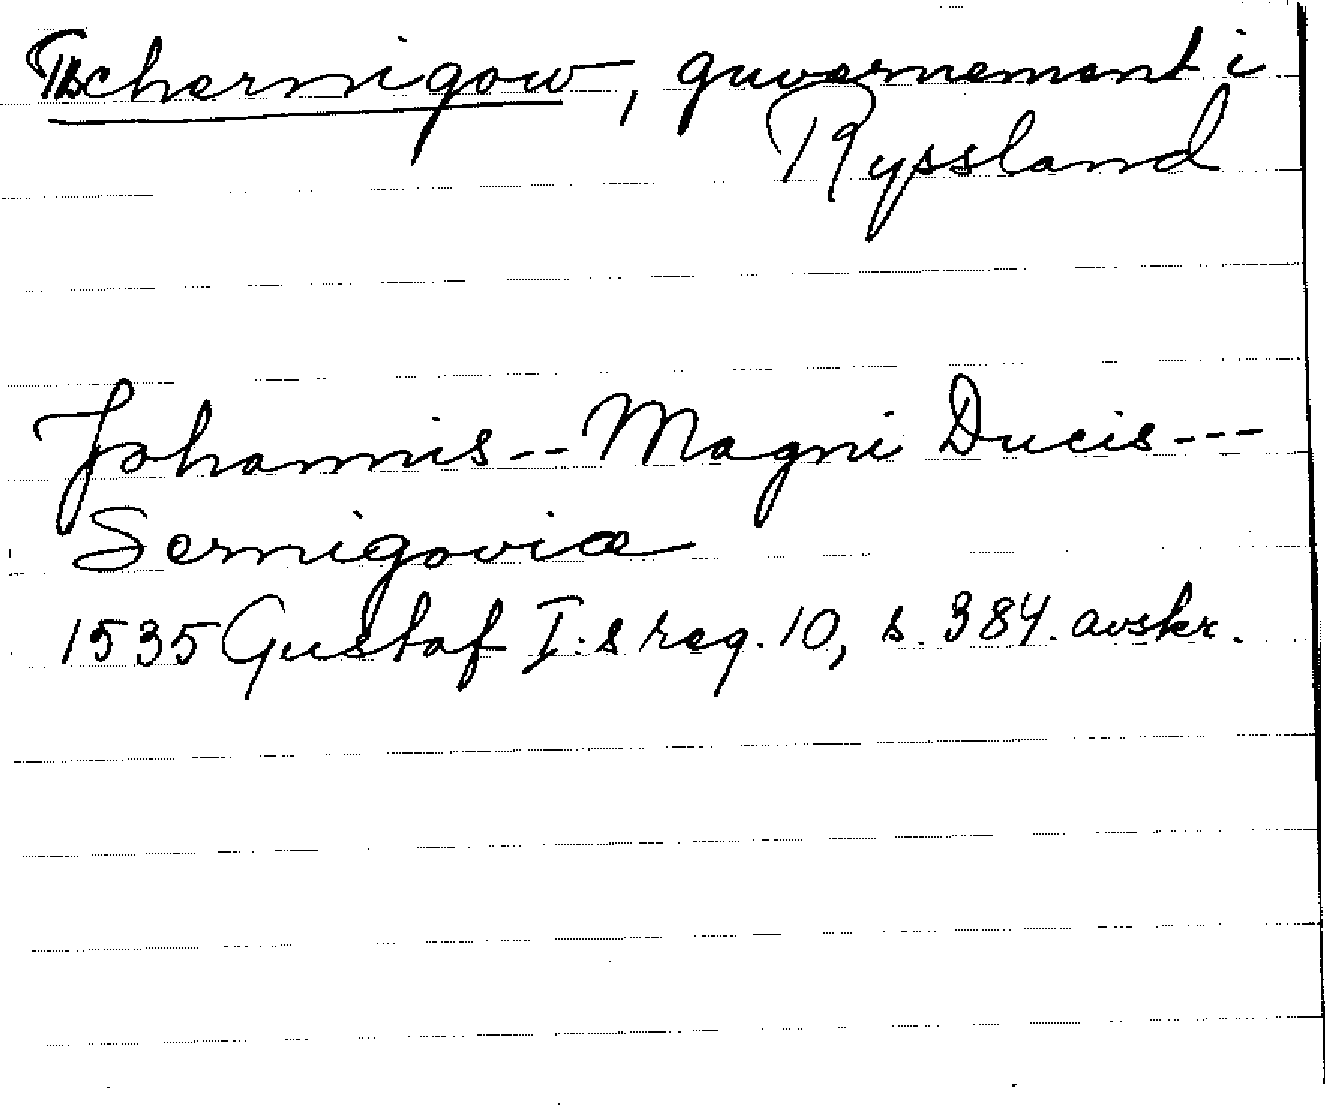 Tschernigow, guvernement i
Ryssland
Johannis -- Magni Ducis ---
Sernigoviæ
1535 Gustaf I:s reg. 10, s. 384. avskr.